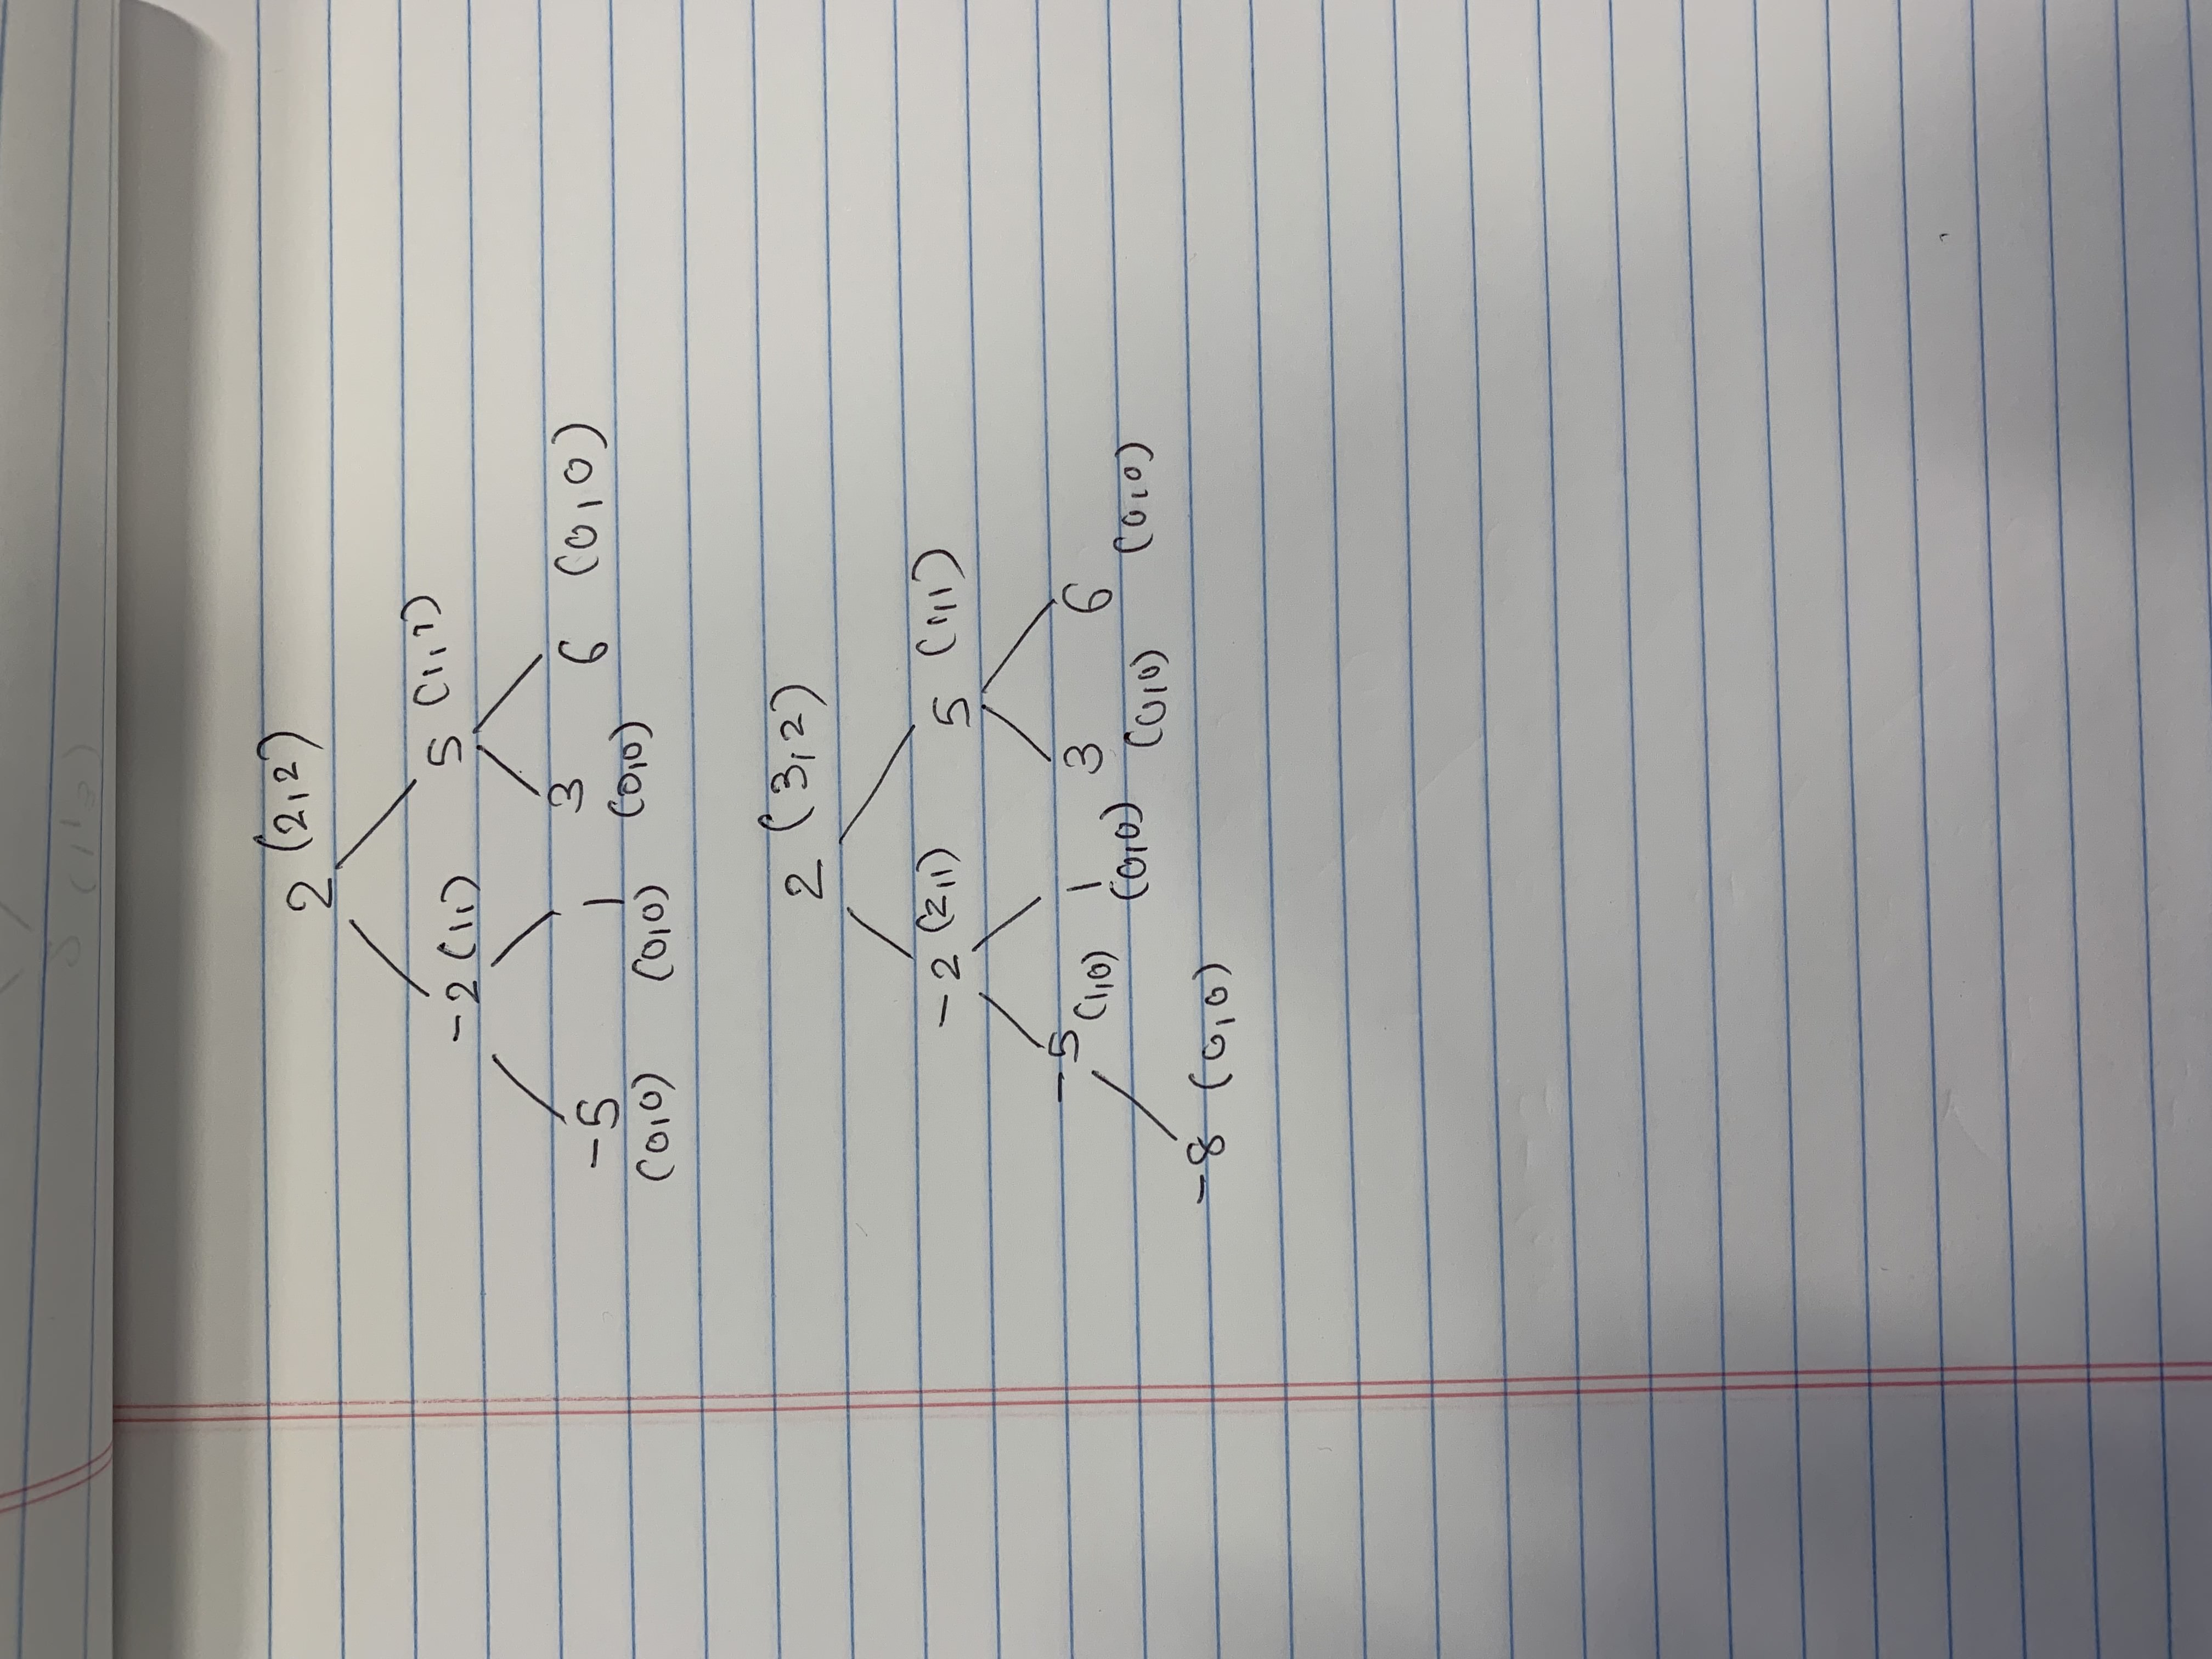 2 (2,2)
-2 (1,1) 5 (1,1)
-5 1 3 6 (0,0)
(0,0) (0,0) (0,0)
2 (3,2)
-2 (2,1) 5 (1,1)
-5 (1,0) 1 3 6
(0,0) (0,0) (0,0)
-8 (0,0)